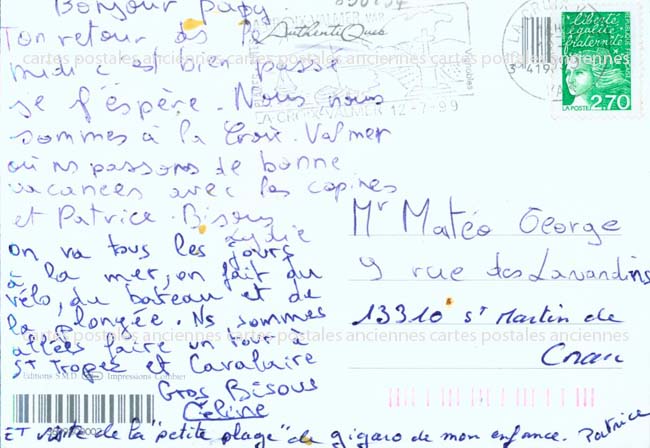 Bonjour Papy.
Ton retour ds le
midi c'est bien passé
je l'espère. Nous nous
sommes à la Croix-Valmer
où ns passons de bonne
vacances avec les copines
et Patrice. Bisous
Lydie
on va tous les jours
à la mer, on fait du
vélo, du bateau et de
la plongée. Ns sommes
allées faire un tour à
St Tropez et Cavalaire
Gros Bisous
Céline
ET visite de la "petite plage" de gigaro de mon enfance. Patrice
Authentiques
LA CROIX-VALMER 12-7-99
liberté
égalité
fraternité
LA POSTE
2,70
Mr Matéo George
9 rue des Lavandins
13310 St Martin de
Crau
cartes postales anciennes cartes postales anciennes cartes postales anciennes
cartes postales anciennes cartes postales anciennes cartes postales anciennes
Editions S.M.D. Impressions Combier